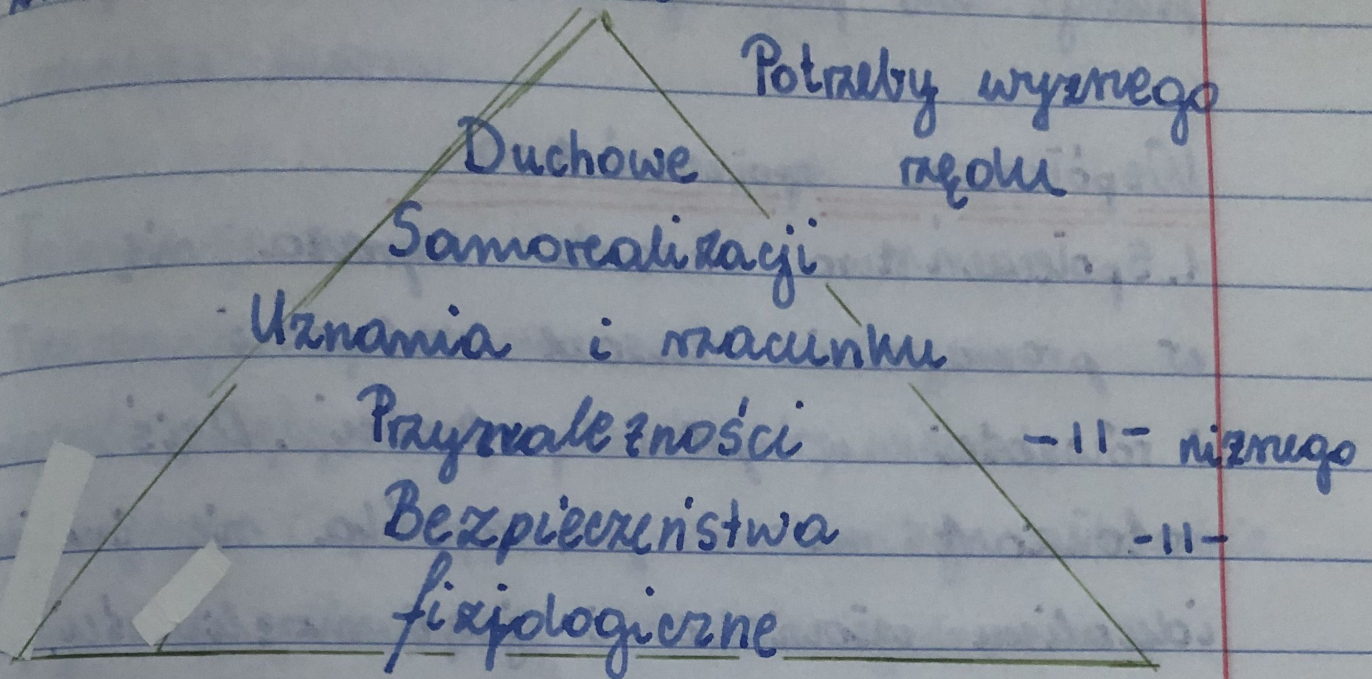 Potrzeby wyższego
Duchowe rzędu
Samorealizacji
Uznania i szacunku
Przynależności -11- niższego
Bezpieczeństwa -11-
fizjologiczne